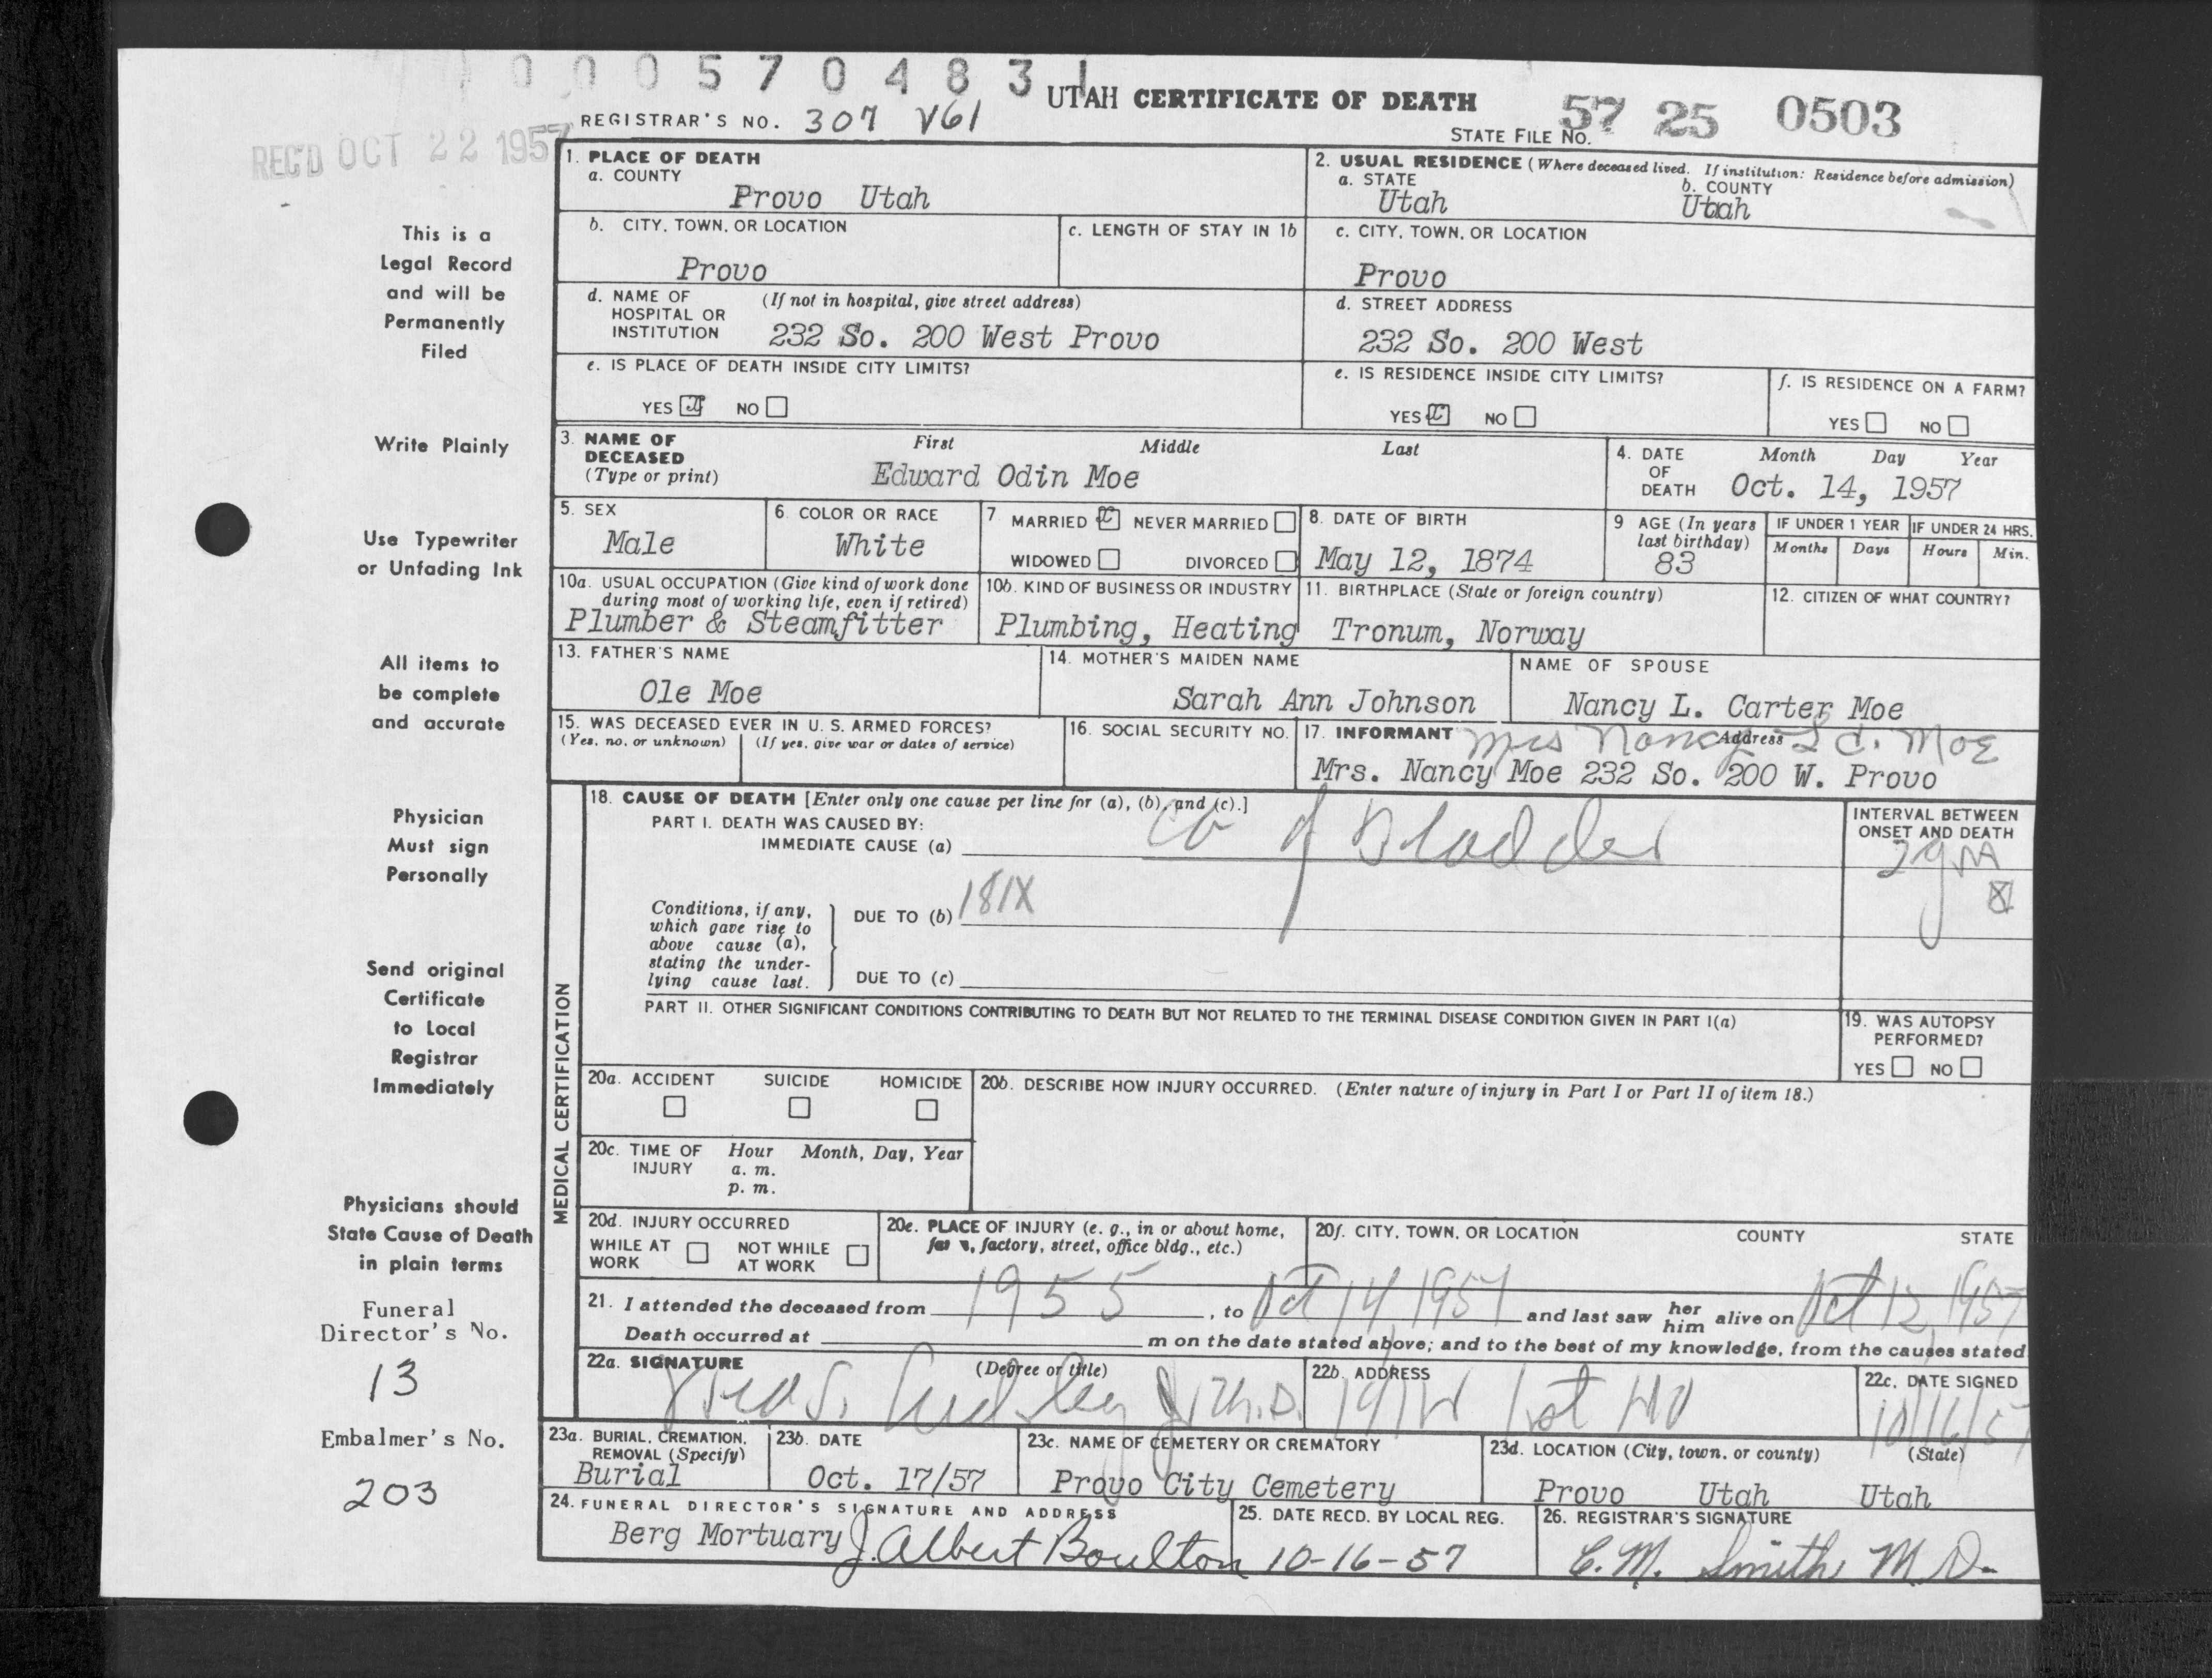 0 0 0 5 7 0 4 8 3 1
UTAH CERTIFICATE OF DEATH
REGISTRAR'S NO. 307 V61
STATE FILE NO. 57 25 0503
REC'D OCT 22 1957
1. PLACE OF DEATH
a. COUNTY
Provo Utah
2. USUAL RESIDENCE (Where deceased lived. If institution: Residence before admission)
a. STATE b. COUNTY
Utah Utah
b. CITY, TOWN, OR LOCATION
Provo
c. LENGTH OF STAY IN 1b
c. CITY, TOWN, OR LOCATION
Provo
d. NAME OF (If not in hospital, give street address)
HOSPITAL OR
INSTITUTION 232 So. 200 West Provo
d. STREET ADDRESS
232 So. 200 West
e. IS PLACE OF DEATH INSIDE CITY LIMITS?
YES X NO
e. IS RESIDENCE INSIDE CITY LIMITS?
YES X NO
f. IS RESIDENCE ON A FARM?
YES NO
3. NAME OF First Middle Last
DECEASED
(Type or print) Edward Odin Moe
4. DATE Month Day Year
OF
DEATH Oct. 14, 1957
5. SEX
Male
6. COLOR OR RACE
White
7 MARRIED X NEVER MARRIED
WIDOWED DIVORCED
8. DATE OF BIRTH
May 12, 1874
9 AGE (In years
last birthday)
83
IF UNDER 1 YEAR IF UNDER 24 HRS.
Months Days Hours Min.
10a. USUAL OCCUPATION (Give kind of work done
during most of working life, even if retired)
Plumber & Steamfitter
10b. KIND OF BUSINESS OR INDUSTRY
Plumbing, Heating
11. BIRTHPLACE (State or foreign country)
Tronum, Norway
12. CITIZEN OF WHAT COUNTRY?
13. FATHER'S NAME
Ole Moe
14. MOTHER'S MAIDEN NAME
Sarah Ann Johnson
NAME OF SPOUSE
Nancy L. Carter Moe
15. WAS DECEASED EVER IN U. S. ARMED FORCES?
(Yes, no, or unknown) (If yes, give war or dates of service)
16. SOCIAL SECURITY NO.
17. INFORMANT Address
Mrs Nancy L C. Moe
Mrs. Nancy Moe 232 So. 200 W. Provo
MEDICAL CERTIFICATION
18. CAUSE OF DEATH [Enter only one cause per line for (a), (b), and (c).]
PART I. DEATH WAS CAUSED BY:
IMMEDIATE CAUSE (a) of Bladder
INTERVAL BETWEEN
ONSET AND DEATH
Conditions, if any,
which gave rise to
above cause (a),
stating the under-
lying cause last.
DUE TO (b) 181X
DUE TO (c)
PART II. OTHER SIGNIFICANT CONDITIONS CONTRIBUTING TO DEATH BUT NOT RELATED TO THE TERMINAL DISEASE CONDITION GIVEN IN PART I(a)
19. WAS AUTOPSY
PERFORMED?
YES NO
20a. ACCIDENT SUICIDE HOMICIDE
20b. DESCRIBE HOW INJURY OCCURRED. (Enter nature of injury in Part I or Part II of item 18.)
20c. TIME OF Hour Month, Day, Year
INJURY a. m.
p. m.
20d. INJURY OCCURRED
WHILE AT NOT WHILE
WORK AT WORK
20e. PLACE OF INJURY (e. g., in or about home,
factory, street, office bldg., etc.)
20f. CITY, TOWN, OR LOCATION COUNTY STATE
21. I attended the deceased from 1955, to Oct 14, 1957 and last saw her him alive on Oct 12, 1957
Death occurred at m on the date stated above; and to the best of my knowledge, from the causes stated
22a. SIGNATURE (Degree or title)
M.D.
22b. ADDRESS
22c. DATE SIGNED
10/16/57
23a. BURIAL, CREMATION,
REMOVAL (Specify)
Burial
23b. DATE
Oct. 17/57
23c. NAME OF CEMETERY OR CREMATORY
Provo City Cemetery
23d. LOCATION (City, town, or county) (State)
Provo Utah Utah
24. FUNERAL DIRECTOR'S SIGNATURE AND ADDRESS
Berg Mortuary J. Albert Boulton
25. DATE RECD. BY LOCAL REG.
10-16-57
26. REGISTRAR'S SIGNATURE
C. M. Smith M D.
This is a
Legal Record
and will be
Permanently
Filed
Write Plainly
Use Typewriter
or Unfading Ink
All items to
be complete
and accurate
Physician
Must sign
Personally
Send original
Certificate
to Local
Registrar
Immediately
Physicians should
State Cause of Death
in plain terms
Funeral
Director's No.
13
Embalmer's No.
203